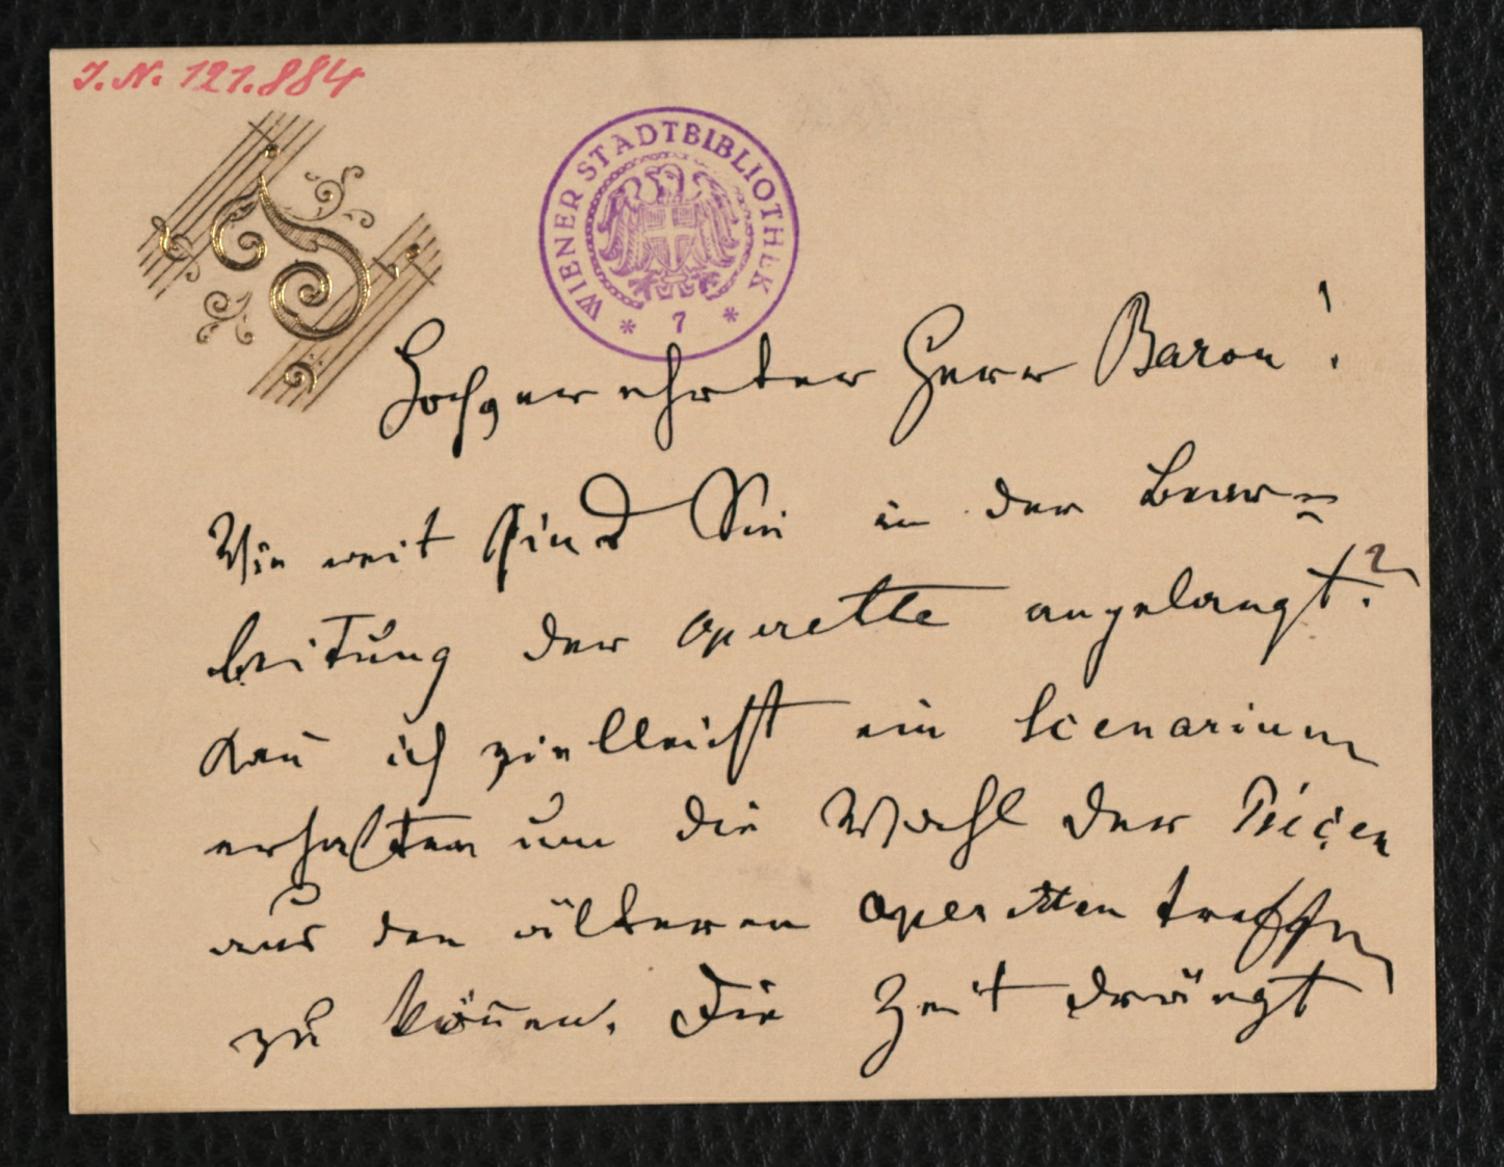 J.N. 121.884
WIENER STADTBIBLIOTHEK
* 7 *
Hochverehrter Herr Baron!
Wie weit sind Sie in der Bear=
beitung der Operette angelangt?
Kan̄ ich vielleicht ein Scenarium
erhalten um die Wahl der Piècen
aus den älteren Operetten treffen
zu kön̄en. Die Zeit drängt